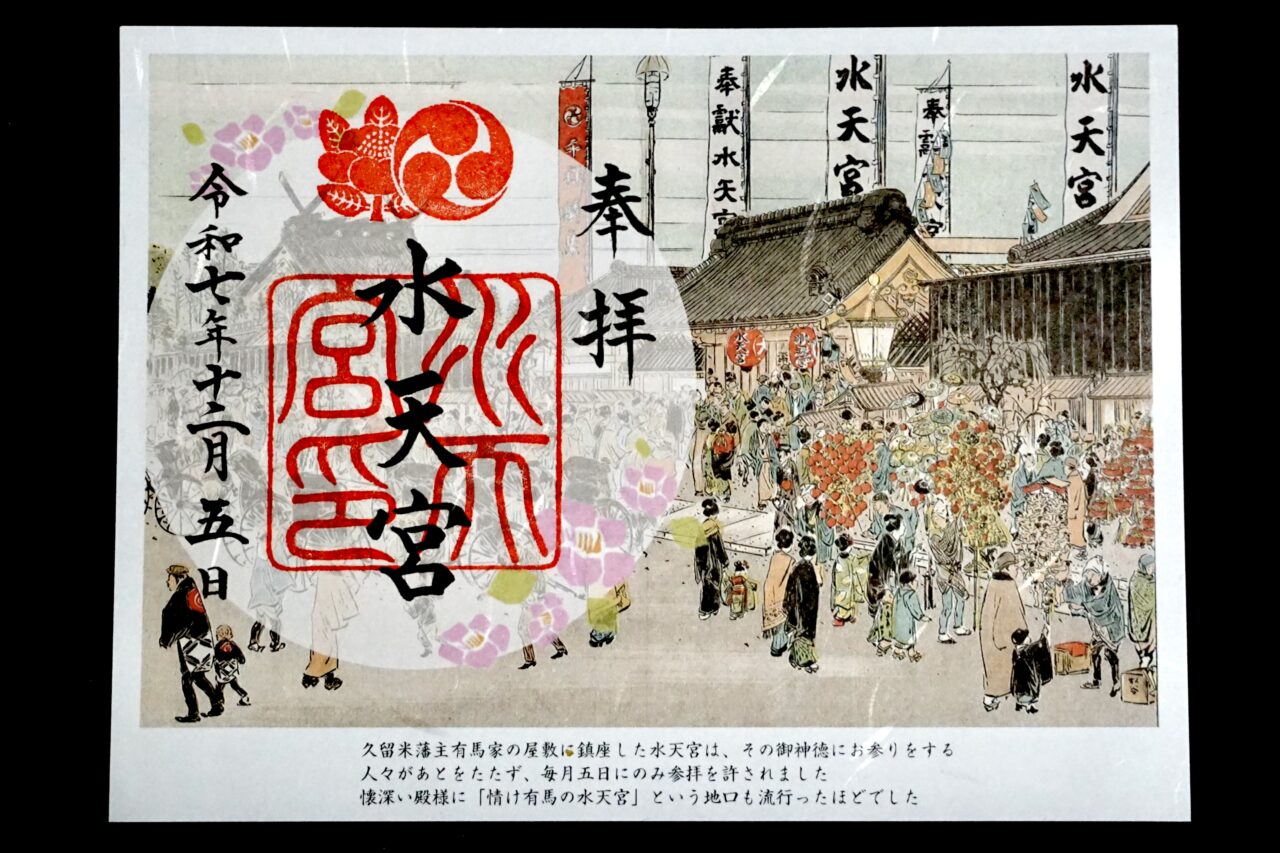 奉拝
水天宮
水天宮印
令和七年十二月五日
奉獻水天宮
水天宮
奉獻
水天宮
水天宮
久留米藩主有馬家の屋敷に鎮座した水天宮は、その御神徳にお参りをする
人々があとをたたず、毎月五日にのみ参拝を許されました
懐深い殿様に「情け有馬の水天宮」という地口も流行ったほどでした